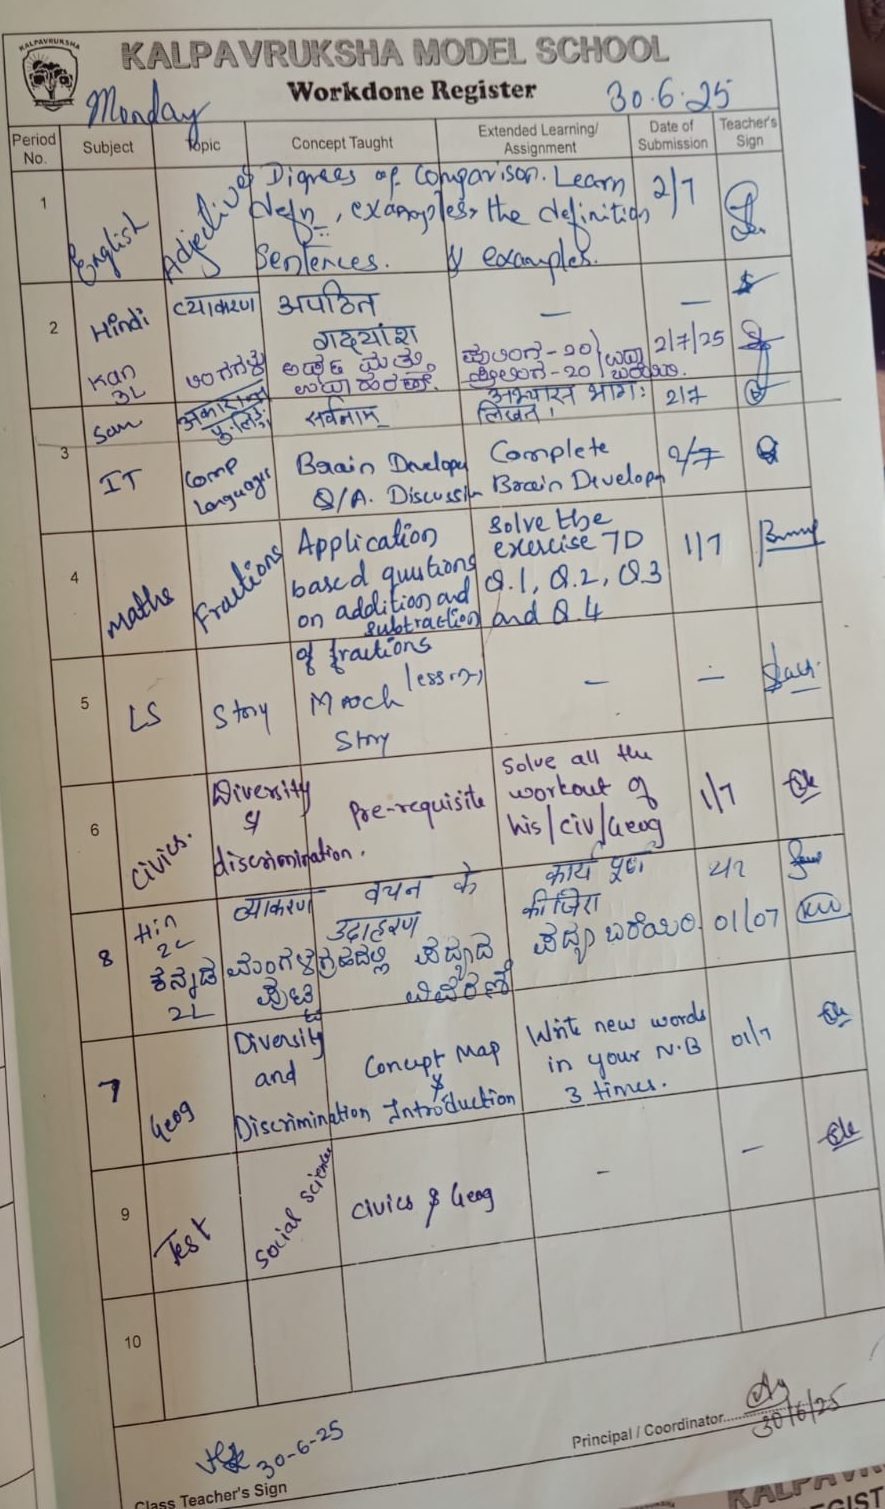 KALPAVRUKSHA
KALPAVRUKSHA MODEL SCHOOL
Workdone Register
Monday
30.6.25
Period No.
Subject
Topic
Concept Taught
Extended Learning/ Assignment
Date of Submission
Teacher's Sign
1
English
Adjectives
Digrees of Comparison.
defn, examples,
Sentences.
Learn
the definition
& examples.
2/7
2
Hindi
व्याकरण
अपठित
गद्यांश
—
—
Kan
3L
2/7/25
Sam
सर्वनाम
अभ्यास भाग:
लिखत।
2/7
3
IT
Comp
languages
Brain Develop
Q/A. Discussin
Complete
Brain Develop
2/7
4
Maths
Fractions
Application
based qustions
on addition and
subtraction
of fractions
Solve the
exercise 7D
Q.1, Q.2, Q.3
and Q.4
1/7
5
LS
Story
Mooch lesson
Story
—
—
6
Civics.
Diversity
&
discrimination.
Pre-requisite
Solve all the
workout of
his/civ/Geog
1/7
8
Hin
2L
व्याकरण
वचन के
उदाहरण
कार्य पूर्ण
कीजिए
2/7
ಕನ್ನಡ
2L
ಮಂಗಳಗ್ರಹದಲ್ಲಿ
ಪುಟ್ಟಿ
ಪದ್ಯದ
ವಿವರಣೆ
ಪದ್ಯ ಬರೆಯಿರಿ.
01/07
7
Geog
Diversity
and
Discrimination
Concept Map
&
Introduction
Write new words
in your N.B
3 times.
01/7
9
Test
Social Science
Civics & Geog
—
—
10
30-6-25
Class Teacher's Sign
Principal / Coordinator
30/6/25
KALPAV